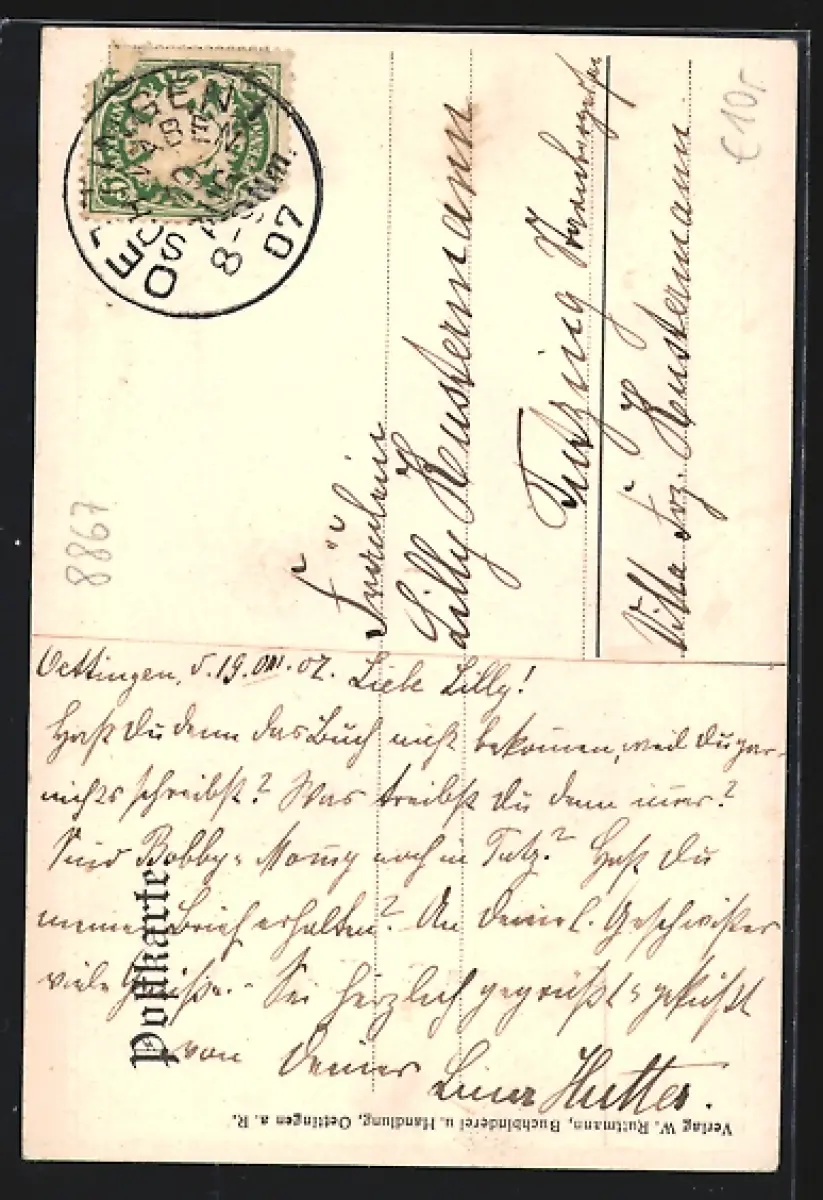 OETTINGEN
SCHWABEN
19
8-9 Nm.
07
€10,-
8867
Fräulein
Lilly Kustermann
Tutzing Starnbergersee
Villa Frz. Kustermann
Oettingen, d. 19. VIII. 07. Liebe Lilly!
Hast Du denn das Buch nicht bekommen, weil Du gar
nichts schreibst? Was treibst Du denn immer?
Sind Bobby u. noch in Tutz.? Hast Du
meinen Brief erhalten? An Deine l. Geschwister
viele Grüße. – Sei herzlich gegrüßt u. geküßt
von Deiner Hutter.
Postkarte
Verlag W. Ruttmann, Buchbinderei u. Handlung, Oettingen a. R.